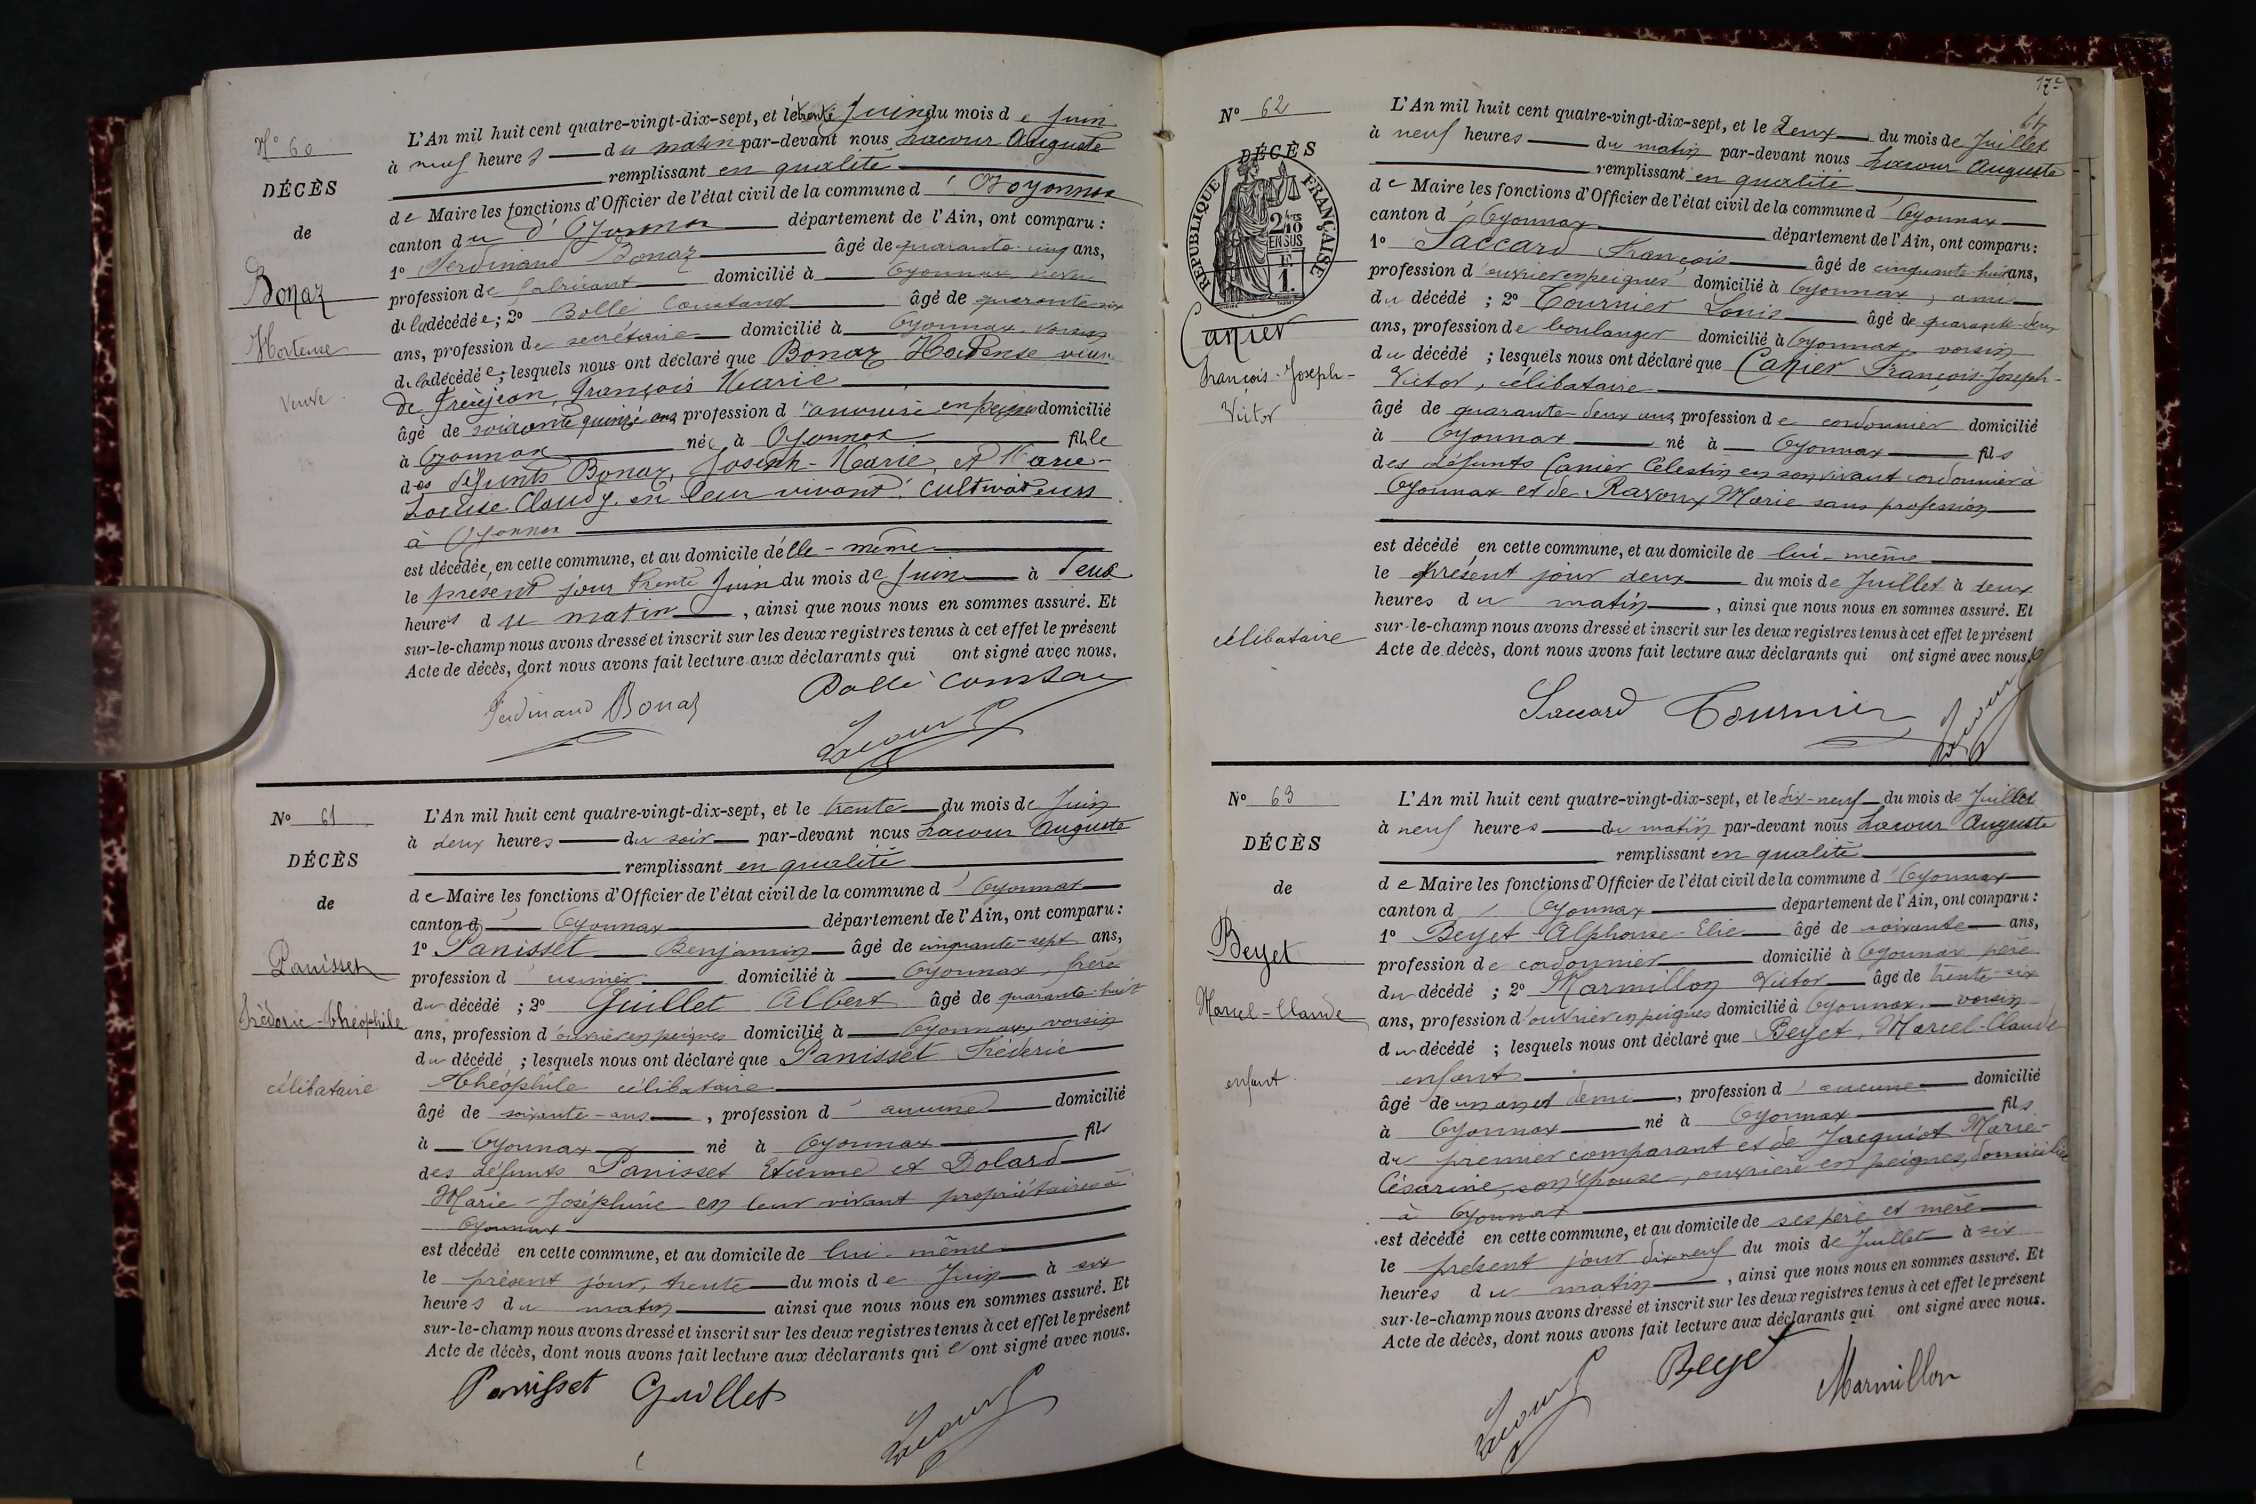 N° 60
DÉCÈS
de
Bonaz
Hortense
veuve
L'An mil huit cent quatre-vingt-dix-sept, et le trente Juin du mois de Juin
à neuf heures du matin par-devant nous Lacour Auguste
remplissant en qualité
de Maire les fonctions d'Officier de l'état civil de la commune d'Oyonnax
canton du d'Oyonnax département de l'Ain, ont comparu :
1° Ferdinand Bonaz âgé de quarante-cinq ans,
profession de fabricant domicilié à Oyonnax neveu
de la décédée ; 2° Bollé Constant âgé de quarante-six
ans, profession de secrétaire domicilié à Oyonnax voisin
de la décédée ; lesquels nous ont déclaré que Bonaz Hortense veuve
de Frèrejean, François Marie
âgé de soixante quinze ans, profession d' ouvrière en peignes domicilié
à Oyonnax née à Oyonnax fille
des défunts Bonaz, Joseph-Marie, et Marie-
Louise Claudy, en leur vivant cultivateurs
à Oyonnax
est décédée, en cette commune, et au domicile d'elle-même
le présent jour trente Juin du mois de Juin à deux
heures du matin, ainsi que nous nous en sommes assuré. Et
sur-le-champ nous avons dressé et inscrit sur les deux registres tenus à cet effet le présent
Acte de décès, dont nous avons fait lecture aux déclarants qui ont signé avec nous.
Ferdinand Bonaz Bollé Constant
Lacour
N° 61
DÉCÈS
de
Panisset
Fréderic-Théophile
célibataire
L'An mil huit cent quatre-vingt-dix-sept, et le trente du mois de Juin
à deux heures du soir par-devant nous Lacour Auguste
remplissant en qualité
de Maire les fonctions d'Officier de l'état civil de la commune d'Oyonnax
canton d' Oyonnax département de l'Ain, ont comparu :
1° Panisset Benjamin âgé de cinquante-sept ans,
profession d' usinier domicilié à Oyonnax, frère
du décédé ; 2° Guillet Albert âgé de quarante-huit
ans, profession d'ouvrier en peignes domicilié à Oyonnax, voisin
du décédé ; lesquels nous ont déclaré que Panisset Fréderic
Théophile célibataire
âgé de soixante-ans, profession d' aucune domicilié
à Oyonnax né à Oyonnax fils
des défunts Panisset Etienne et Dolard
Marie-Joséphine en leur vivant propriétaires à
Oyonnax
est décédé en cette commune, et au domicile de lui-même
le présent jour, trente du mois de Juin à six
heures du matin ainsi que nous nous en sommes assuré. Et
sur-le-champ nous avons dressé et inscrit sur les deux registres tenus à cet effet le présent
Acte de décès, dont nous avons fait lecture aux déclarants qui ont signé avec nous.
Panisset Guillet
Lacour
N° 62
DÉCÈS
RÉPUBLIQUE FRANÇAISE
2/10
EN SUS
1 F.
Canier
François-Joseph-
Victor
célibataire
L'An mil huit cent quatre-vingt-dix-sept, et le Deux du mois de Juillet
à neuf heures du matin par-devant nous Lacour Auguste
remplissant en qualité
de Maire les fonctions d'Officier de l'état civil de la commune d'Oyonnax
canton d'Oyonnax département de l'Ain, ont comparu :
1° Saccard François âgé de cinquante-huit ans,
profession d'ouvrier en peignes domicilié à Oyonnax, ami
du décédé ; 2° Tournier Louis âgé de quarante-deux
ans, profession de boulanger domicilié à Oyonnax, voisin
du décédé ; lesquels nous ont déclaré que Canier François-Joseph-
Victor, célibataire
âgé de quarante-deux ans, profession de cordonnier domicilié
à Oyonnax né à Oyonnax fils
des défunts Canier Célestin en son vivant cordonnier à
Oyonnax et de Ravoux Marie sans profession
est décédé en cette commune, et au domicile de lui-même
le présent jour deux du mois de Juillet à deux
heures du matin, ainsi que nous nous en sommes assuré. Et
sur-le-champ nous avons dressé et inscrit sur les deux registres tenus à cet effet le présent
Acte de décès, dont nous avons fait lecture aux déclarants qui ont signé avec nous.
Saccard Tournier
Lacour
N° 63
DÉCÈS
de
Beyet
Marcel-Claude
enfant
L'An mil huit cent quatre-vingt-dix-sept, et le dix-neuf du mois de Juillet
à neuf heures du matin par-devant nous Lacour Auguste
remplissant en qualité
de Maire les fonctions d'Officier de l'état civil de la commune d'Oyonnax
canton d' Oyonnax département de l'Ain, ont comparu :
1° Beyet Alphonse-Elie âgé de soixante ans,
profession de cordonnier domicilié à Oyonnax père
du décédé ; 2° Marmillon Victor âgé de trente-six
ans, profession d'ouvrier en peignes domicilié à Oyonnax, voisin
du décédé ; lesquels nous ont déclaré que Beyet, Marcel-Claude
enfant
âgé de un an et demi, profession d' aucune domicilié
à Oyonnax né à Oyonnax fils
du premier comparant et de Jacquiot Marie-
Césarine, son épouse, ouvrière en peignes, domiciliés
à Oyonnax
est décédé en cette commune, et au domicile de ses père et mère
le présent jour dix-neuf du mois de Juillet à six
heures du matin, ainsi que nous nous en sommes assuré. Et
sur-le-champ nous avons dressé et inscrit sur les deux registres tenus à cet effet le présent
Acte de décès, dont nous avons fait lecture aux déclarants qui ont signé avec nous.
Lacour Beyet Marmillon